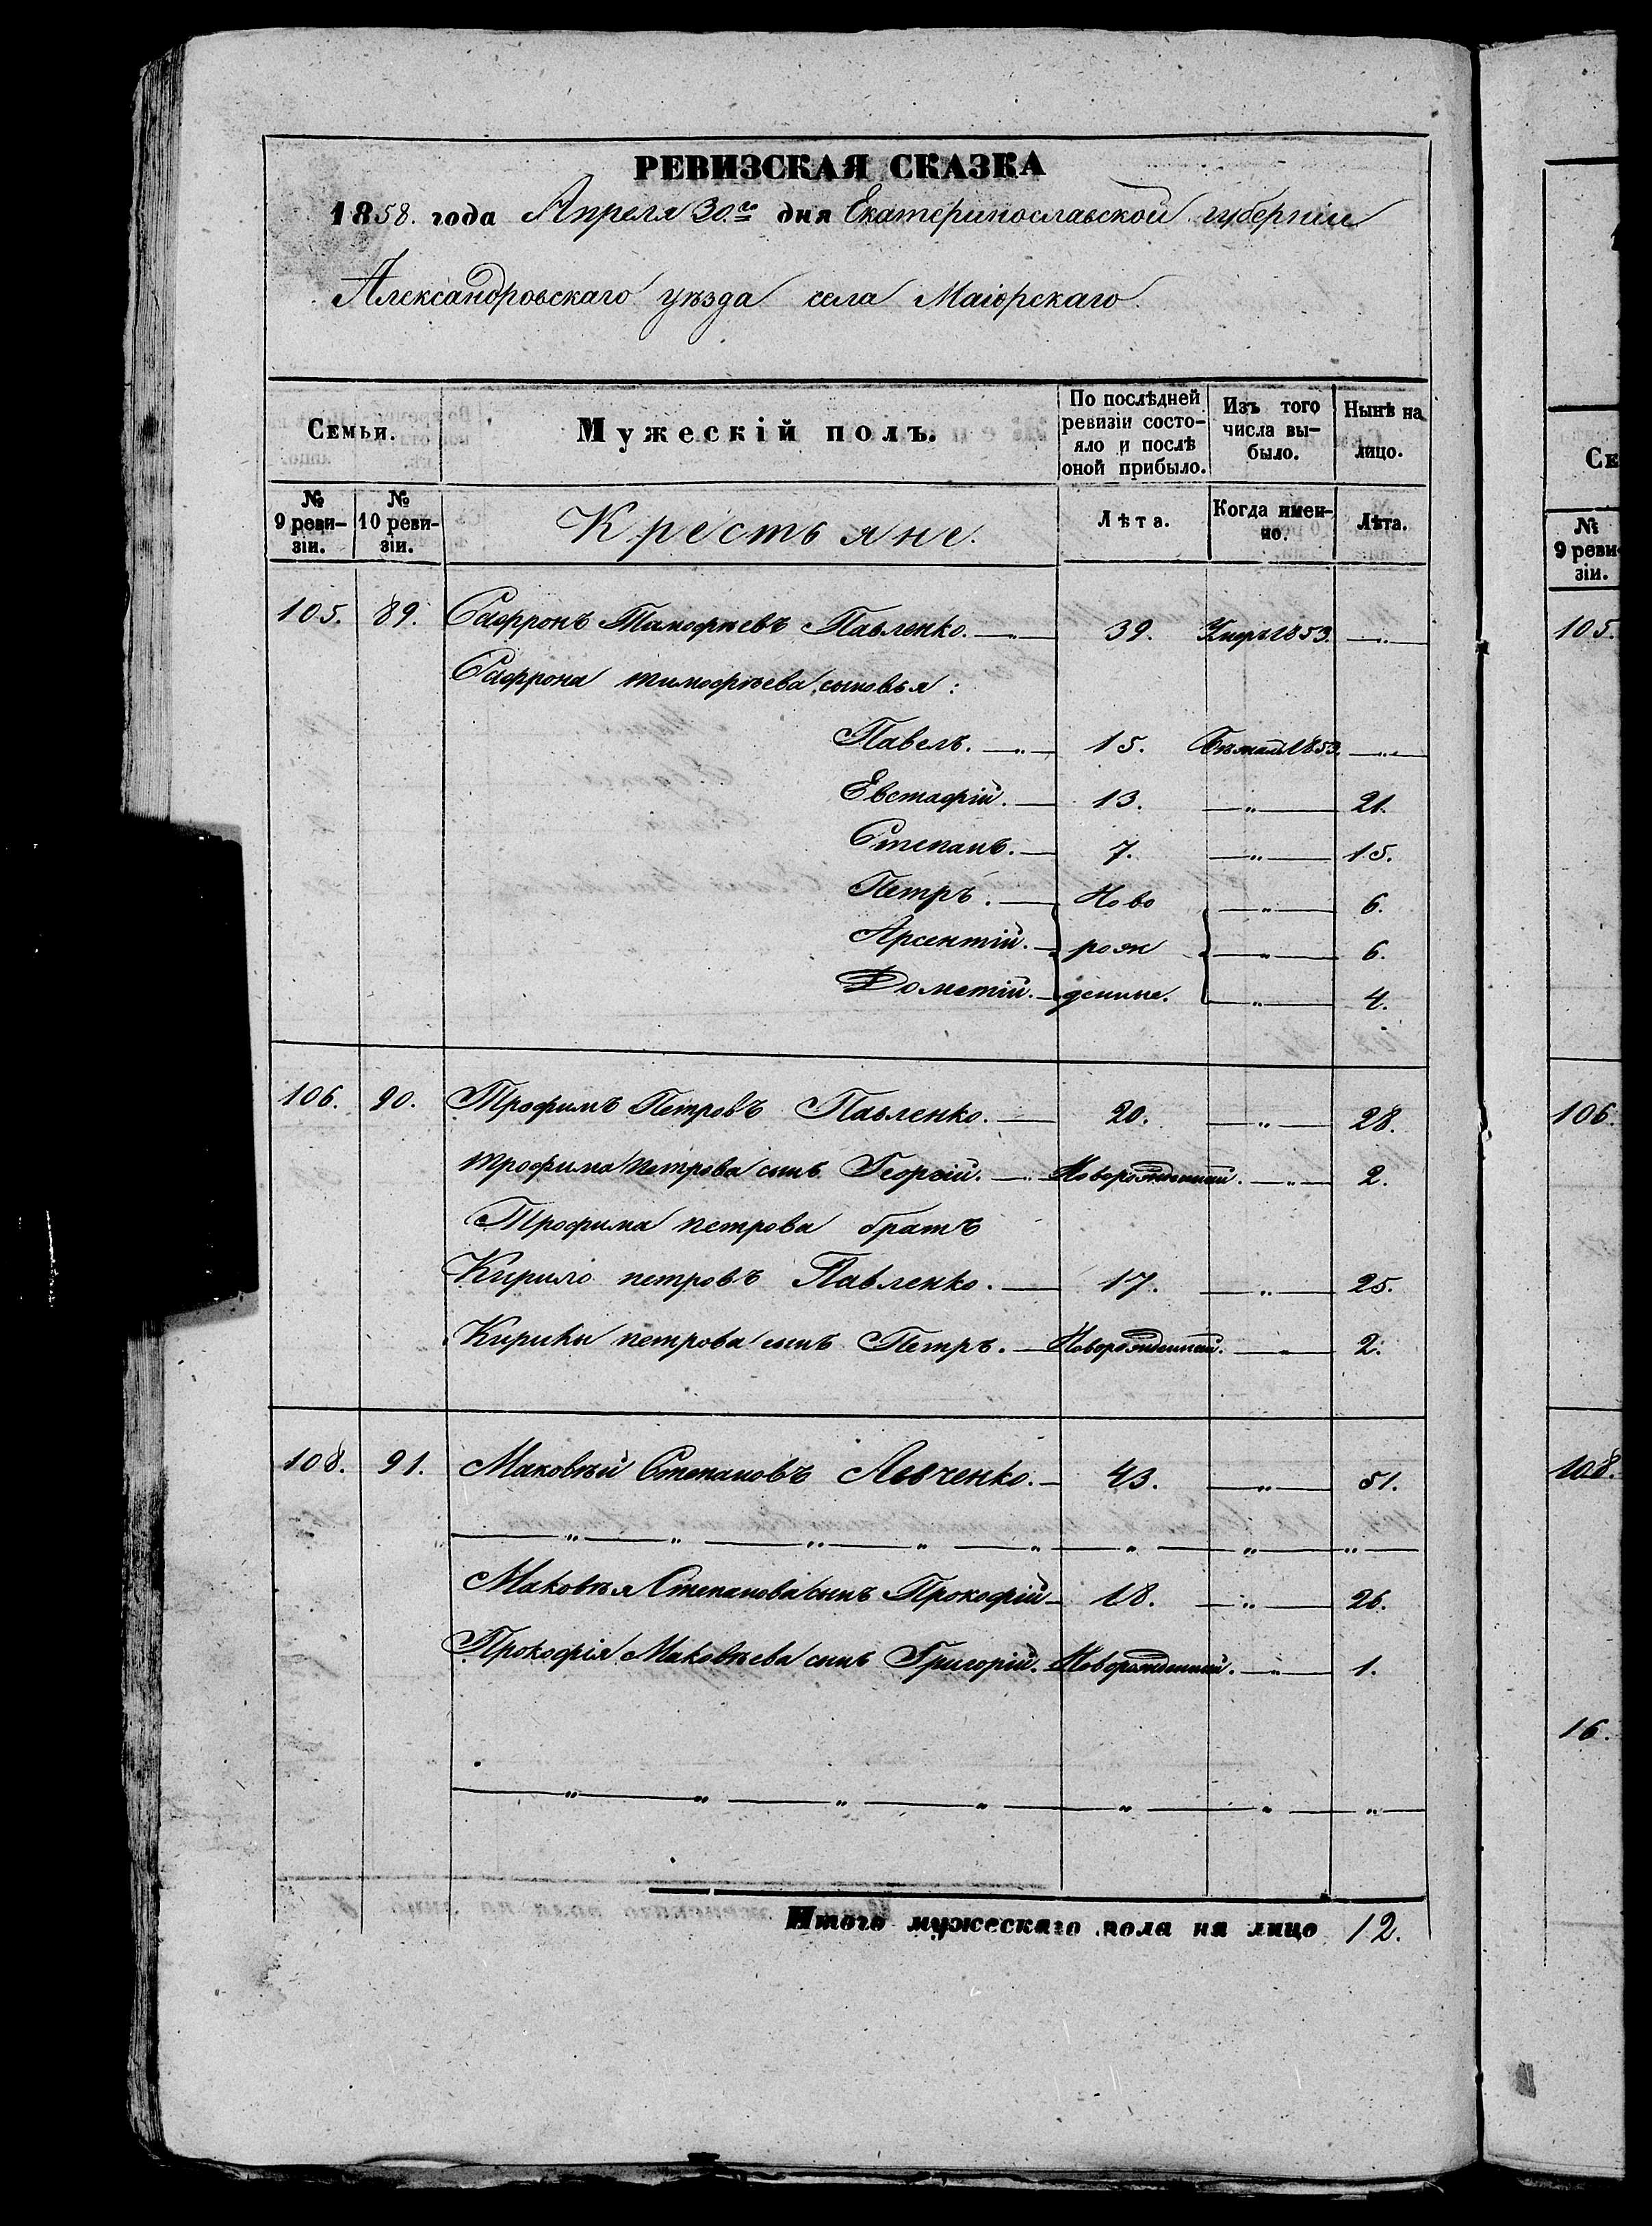 РЕВИЗСКАЯ СКАЗКА
1858. года Апреля 30.го дня Екатеринославской губернiи
Александровскаго уѣзда села Маiорскаго
Семьи.
Мужескій полъ.
По послѣдней ревизіи состо-
яло и послѣ оной прибыло.
Изъ того числа вы-
было.
Нынѣ на лицо.
№ 9 реви-
зіи.
№ 10 реви-
зіи.
Крестьяне.
Лѣта.
Когда имен-
но.
Лѣта.
105. 89. Сафронъ Тимофѣевъ Павленко. 39. 1853. "
Сафрона тимофѣева сыновья:
Павелъ. " 15. 1853. "
Евстафій. 13. " 21.
Степанъ. 7. " 15.
Петръ. Ново " 6.
Арсентій. рож " 6.
Дометій. денные. " 4.
106. 90. Трофимъ Петровъ Павленко. 20. " 28.
трофима петрова сынъ Георгій. " Новорожденный. " 2.
Трофима петрова братъ
Кирило петровъ Павленко. 17. " 25.
Кирилы петрова сынъ Петръ. Новорожденный. " 2.
108. 91. Маковѣй Степановъ Левченко. 43. " 51.
" " " " " " " "
Маковѣя Степанова сынъ Прокофій 18. " 26.
Прокофія Маковѣева сынъ Григорій. Новорожденный. " 1.
" " " " " " "
Итого мужескаго пола на лицо 12.
Се
№ 9 реви
зіи.
105.
106.
108.
16.